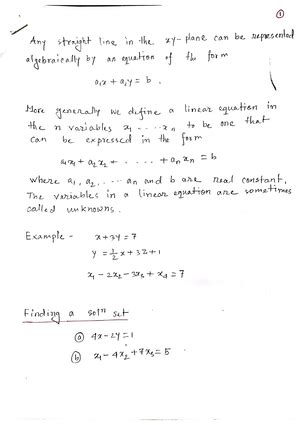 ①
Any straight line in the xy-plane can be represented
algebraically by an equation of the form
a₁x + a₂y = b .
More generally we define a linear equation in
the n variables x₁ ..... xₙ to be one that
can be expressed in the form
a₁x₁ + a₂x₂ + ...... + aₙxₙ = b
where a₁, a₂, .... aₙ and b are real constant.
The variables in a linear equation are sometimes
called unknowns.
Example - x + 3y = 7
y = 1/2 x + 3z + 1
x₁ - 2x₂ - 3x₃ + x₄ = 7
Finding a solⁿ set
ⓐ 4x - 2y = 1
ⓑ x₁ - 4x₂ + 7x₃ = 5